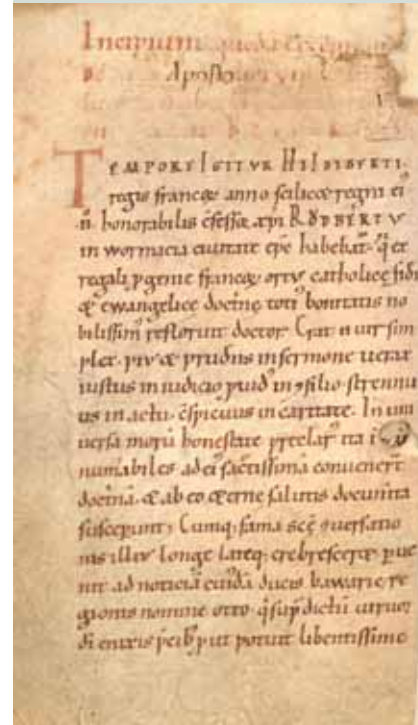 Incipiunt
Aposto
TEMPORE IGITVR HILDIBERTI
regis francoꝝ anno scilicet regni ei
ii honorabilis cfessor xpi RVDBERTV
in wormacia ciuitate epc habebat qi ex
regali pgenie francoꝝ ortꝰ catholicę fidi
& ewangelicę doctrinę totiꝰ bonitatis no
bilissimꝰ refloruit doctor. Erat n uir sim
plex piꝰ & prudens in sermone uerax
iustus in iudicio puidꝰ in ꝯsilio strennu
us in actu cspicuus in caritate. In uni
uersa morū honestate preclarꝰ ita
numabiles ad eiꝰ sac̄tissimā conuenert
doctrinā & ab eo ęternę salutis documta
susceperunt. Cumq; fama scę ꝯuersatio
nis illiꝰ longe lateq; crebresceret puę
nit ad noticiā cuidā ducis bawarię re
gionis nomine otto qi sup dictū uirū
di enixis pcib; put potuit libentissime